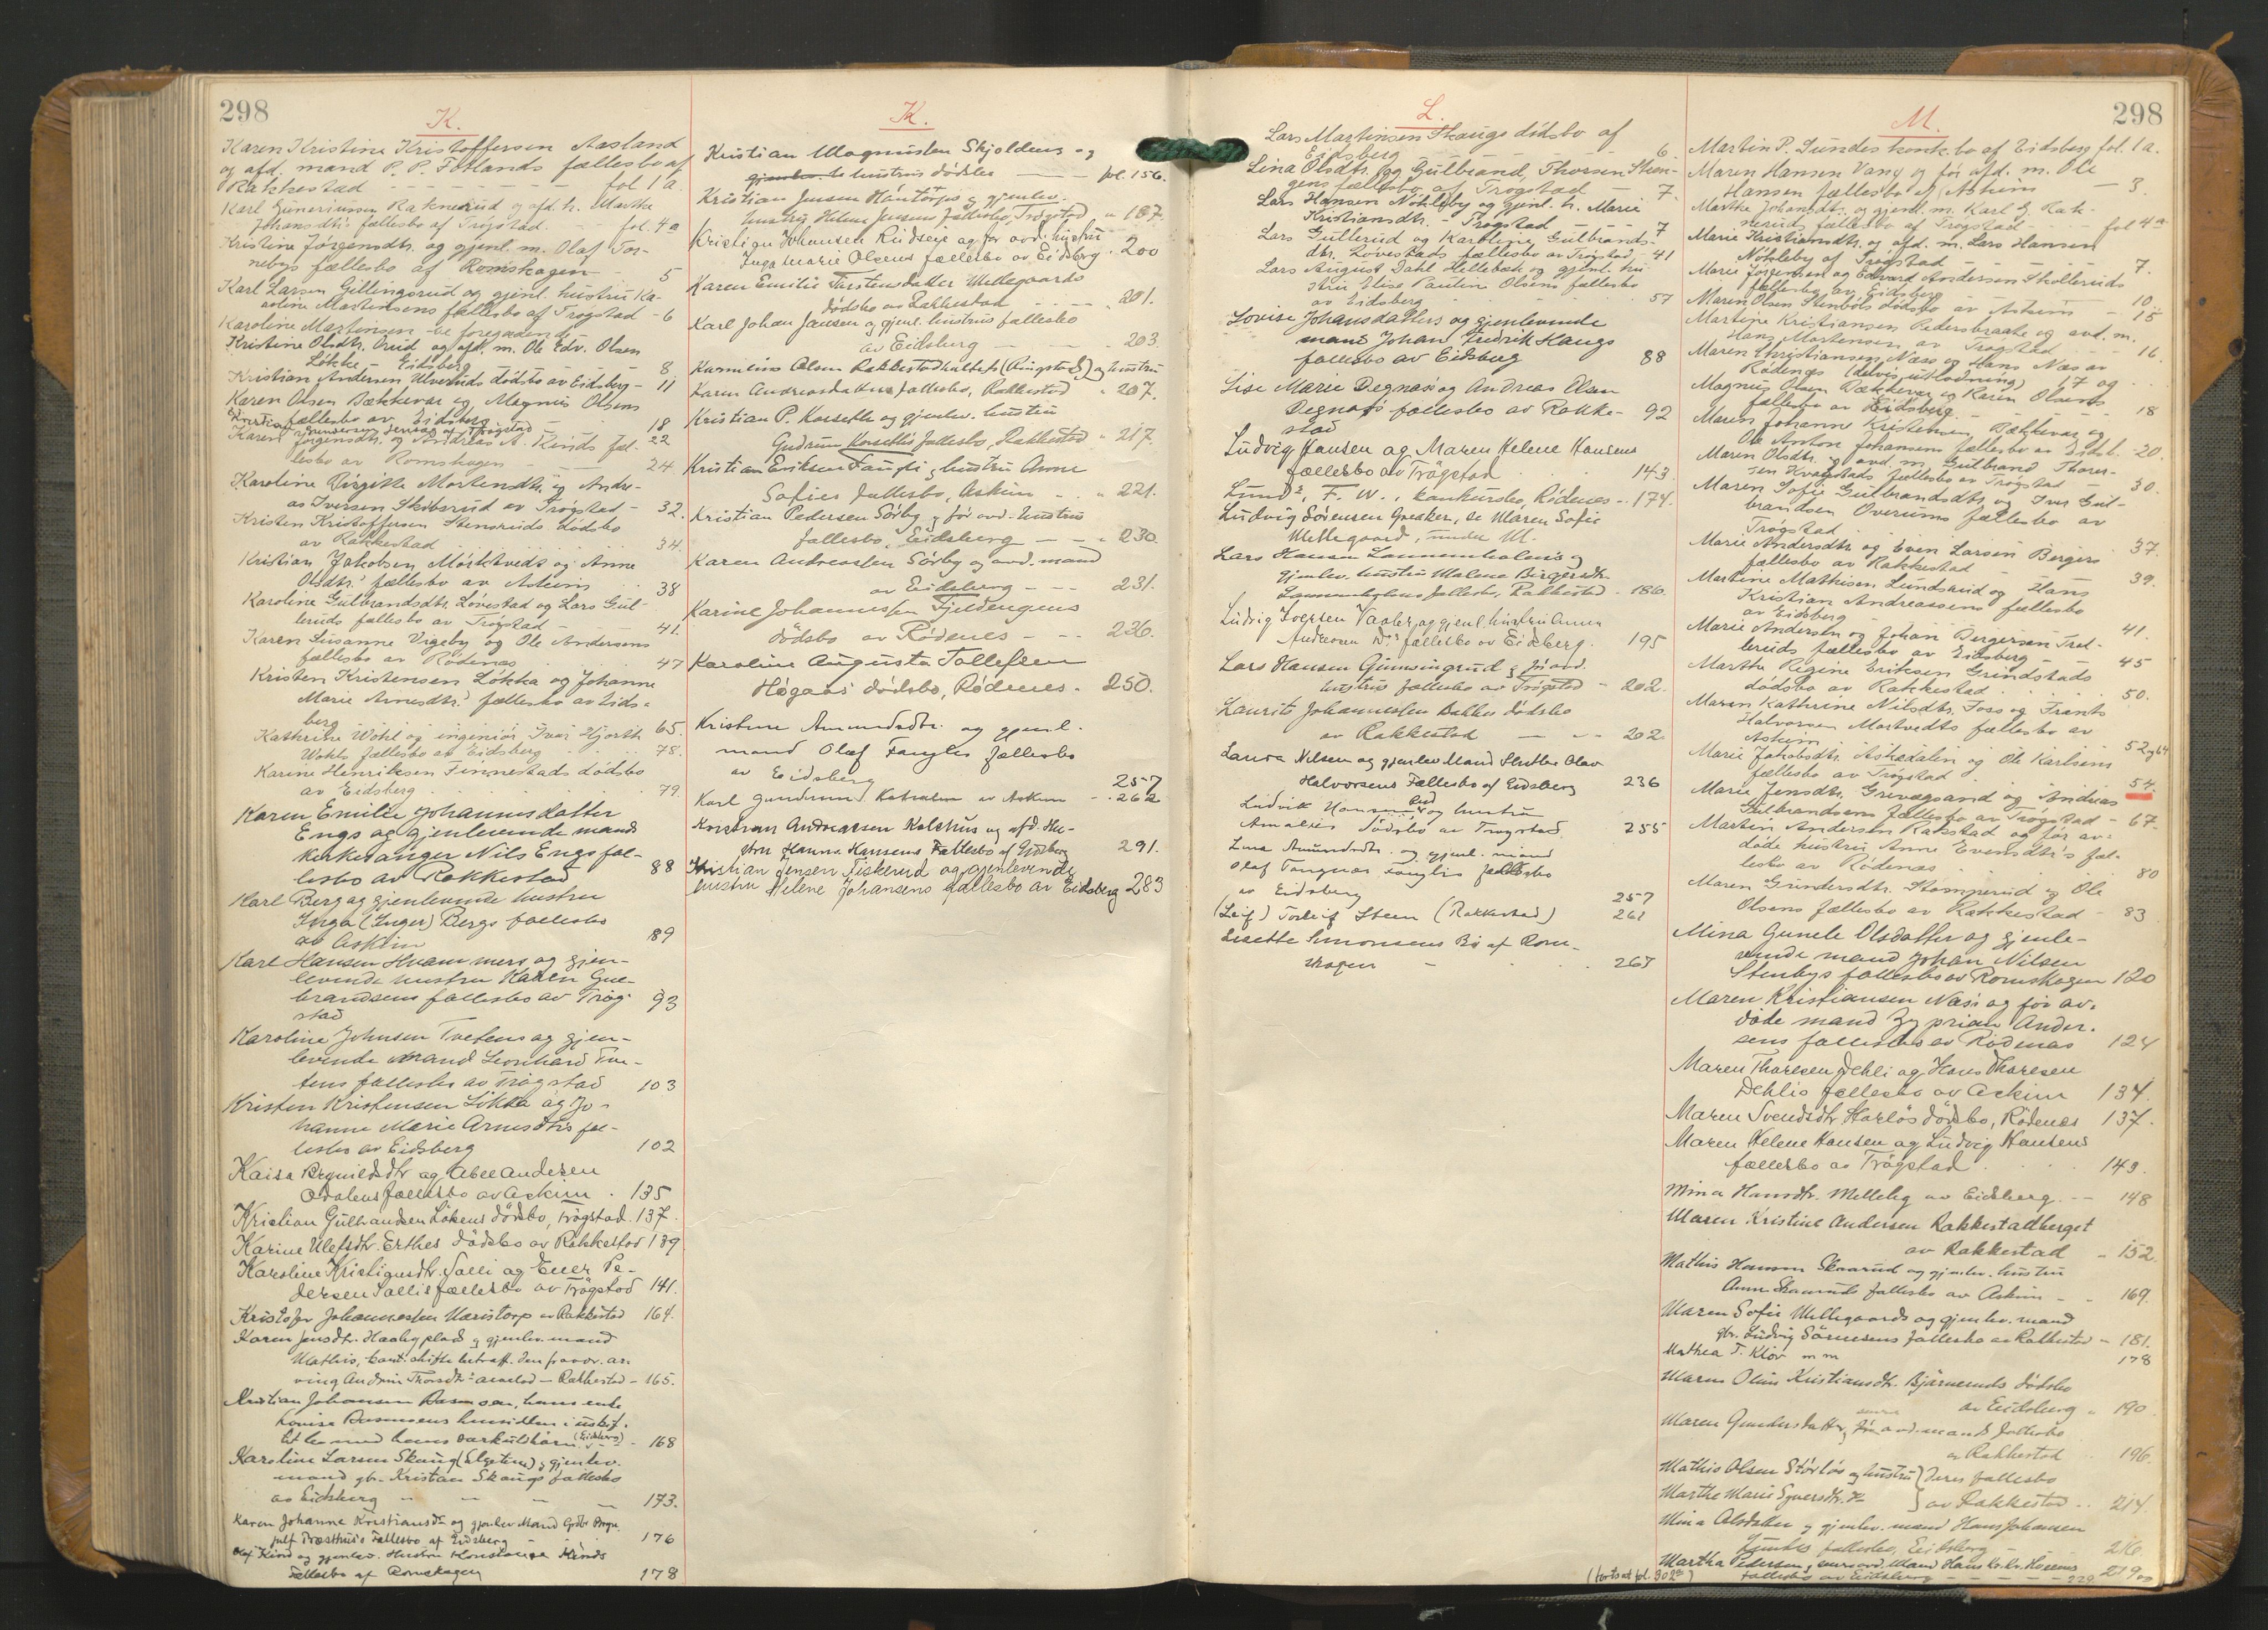 298
K.
Karen Kristine Kristoffersen Aasland
og afd. mand P. P. Fötlands fællesbo af
Rakkestad - fol 1a.
Karl Guneriussen Raknerud og afd. h. Marthe
Johansdtr. fællesbo af Trögstad. fol. 4a
Kristine Jörgensdtr. og gjenl. m. Olaf Tor-
nebys fællesbo af Römskogen - 5
Karl Larsen Gillingsrud og gjenl. hustru Ka-
roline Martinsens fællesbo af Trögstad - 6
Karoline Martinsen - se foregaaende.
Kristine Olsdtr. Orud og afd. m. Ole Edv. Olsen
Løkke - Eidsberg 8
Kristian Andersen Ulveruds dödsbo av Eidsberg - 11
Karen Olsen Bækkevar og Magnus Olsens
fællesbo av Eidsberg 18
22
Karen Jörgensdtr. og Andreas A. Kinds fæl-
lesbo av Romskogen 24
Karoline Birgitte Mortensdtr. og Andre-
as Iversen Skibsrud av Trögstad - 32.
Kristen Kristoffersen Stensruds dödsbo
av Rakkestad 34.
Kristian Jakobsen Mörktveds og Anne
Olsdtr.' fællesbo av Askim 38
Karoline Gulbrandsdtr. Lövestad og Lars Gul-
leruds fællesbo av Trögstad - 41.
Karen Susanne Vigeby og Ole Andersens
fællesbo av Rödenæs 47
Kristen Kristensen Løkka og Johanne
Marie Arnesdtr.' fællesbo av Eids-
berg 65.
Kathrine Wohl og ingeniör Ivar Hjorth
Wohls fællesbo av Eidsberg 78.
Karine Henriksen Finnestads dödsbo
av Eidsberg 79.
Karen Emilie Johannesdatter
Engs og gjenlevende mand
kirkesanger Nils Engs fæl-
lesbo av Rakkestad 88
Karl Berg og gjenlevende hustru
Inga (Inger) Bergs fællesbo
av Askim 89
Karl Hansen Hvammers og gjen-
levende hustru Karen Gul-
brandsens fællesbo av Trög-
stad 93
Karoline Johnsen Tvetens og gjen-
levende mand Leonhard Tve-
tens fællesbo av Trögstad 103
Kristen Kristensen Løkka og Jo-
hanne Marie Arnesdtrs fæl-
lesbo av Eidsberg 102
Kaisa Bryniildsdtr og Abel Andersen
Odalens fællesbo av Askim . 135
Kristian Gulbrandsen Lökens dödsbo, Trögstad. 137.
Karine Ulefsdtr. Erthes dödsbo av Rakkestad 139
Karoline Kristiansdtr. Salli og Even Pe-
dersen Sallis fællesbo av Trögstad 141.
Kristofer Johannesen Haristorp av Rakkestad 164.
Karen Jensdtr. Haabyplads og gjenlev. mand
Mathis,
165.
Kristian Johansen Basmoen, hans enke
Lovise Basmoens
(Eidsberg) 168
Karoline Larsen Skaug (Elgetun) og gjenlev.
mand gbr. Kristian Skaugs fællesbo
av Eidsberg 173.
Karen Johanne Kristiansdr og gjenlev Mand Gbr.
Præsthus's Fællesbo af Eidsberg 176
Olaf Kind og gjenlev. Hustru Konstanse Kinds
Fællesbo af Romskogen 178
K.
Kristian Magnussen Skjoldens og
gjenlev. hustrus dödsbo fol. 156.
Kristian Jensen Häntorps og gjenlev.
hustru Helene Jensens fællesbo, Trögstad " 187.
Kristian Johansen Rudseie og för avd. hustru
Inga Marie Olsens fællesbo av Eidsberg . 200
Karen Emilie Torstensdatter Mellegaards
dödsbo av Rakkestad 201.
Karl Johan Jansen og gjenl. hustrus fællesbo
av Eidsberg 203.
Karinius Olsen Rakkestad (Ringstad) og hustru
Karen Andreasdatters fællesbo, Rakkestad " 207.
Kristian P. Korseth og gjenlev. hustru
Gudrun Korseths fællesbo, Rakkestad " 217.
Kristian Eriksen Fangli og hustru Anne
Sofies fællesbo, Askim 221.
Kristian Pedersen Sörby og för avd. hustrus
fællesbo, Eidsberg 230.
Karen Andreassen Sörby og avd. mand
av Eidsberg 231.
Karine Johannessen Fjeldengens
dödsbo av Rödenes 236.
Karoline Augusta Tollefsen
Högaas' dödsbo, Rödenes. 250.
Kristine Amundsdtr. og gjenl.
mand Olaf Fanglis fællesbo
av Eidsberg 257
Karl av Askim 262
Kristian Andreassen Kolshus og afd. Hu-
stru Hanna Hansens Fællesbo af Eidsberg 291.
Kristian Jensen Fiskerud og gjenlevende
hustru Helene Johansens fællesbo av Eidsberg 283
L.
Lars Martinsen Skaugs dödsbo af
Eidsberg 6.
Lina Olsdtr. og Gulbrand Thorsen Steen-
gens fællesbo af Trögstad 7.
Lars Hansen Nöhleby og gjenl. h. Marie
Kristiansdtr. - Trögstad 7
Lars Gullerud og Karoline Gulbrands-
dtr. Lövestads fællesbo av Trögstad - 41
Lars August Dahl Hellebæk og gjenl. hu-
stru Elise Pauline Olsens fællesbo
av Eidsberg 57
Lovise Johansdatters og gjenlevende
mand Johan Fredrik Haugs
fællesbo av Eidsberg 88
Lise Marie Degnæs og Andreas Olsen
Degnæs' fællesbo av Rakke-
stad 92
Ludvig Hansen og Maren Helene Hansens
fællesbo av Trögstad 143
Lunds, F. W., konkursbo, Rödenes - 174.
Ludvig Sörensen Greaker, se Maren Sofie
Mellegaard, under M.
Lars Hansen
gjenlev. hustru Malene Birgersdtr.
fællesbo, Rakkestad - 186.
Ludvig Iversen Vaaler og gjenl. hustru Anna
Andersen Ds fællesbo av Eidsberg. 195
Lars Hansen Gunnengrud og för avd.
hustrus fællesbo av Trögstad 202.
Laurits Johannessen Bakkes dödsbo
av Rakkestad 202
Laura Nilsen og gjenlev Mand Skutbr. Olav
Halvorsens Fællesbo af Eidsberg 236
Ludvik og hustru
Amalies Dödsbo av Trögstad 255
Lina Amundsdtr. og gjenl. mand
Olaf Fanglis fællesbo
av Eidsberg 257
(Leif) Torleif Steen (Rakkestad) 261
Lisette Simonsens Bo af Röm-
skogen 267
298
M.
Martin P. Sundes konk.bo af Eidsberg fol. 1a.
Maren Hansen Vang og för afd. m. Ole
Hansen fællesbo af Askim 3.
Marthe Johansdtr. og gjenl. m. Karl G. Rak-
neruds fællesbo af Trögstad fol 4a
Marie Kristiansdtr. og afd. m. Lars Hansen
Nöhleby af Trögstad 7.
Marie Jörgensen og Edvard Andersen Skolleruds
fællesbo av Eidsberg 10.
Maren Olsen Stenböls dödsbo av Askim - 15
Martine Kristiansen Pedersbraate og avd. m.
Hans Mortensen av Trögstad 16.
Maren Christiansen Næss og Hans Næs av
Rödenæs (delvis utlodning) 17 og
Magnus Olsen Bækkevar og Karen Olsens
fællesbo av Eidsberg. 18
Maren Johanne Kristensen Bækkevar og
Ole Anton Johansens fællesbo av Eidsb. 20.
Maren Olsdtr. og avd. m. Gulbrand Thores-
sen Kvagstads fællesbo av Trögstad 30.
Maren Sofie Gulbrandsdtr. og Iver Gul-
brandsen Overuds fællesbo av
Trögstad 37.
Marie Andersdtr. og Even Larsen Bergers
fællesbo av Rakkestad 39.
Martine Mathisen Lundsrud og Hans
Kristian Andreassens fællesbo
av Eidsberg 41.
Marie Andersen og Johan Bergersen Tvet-
bruds fællesbo av Eidsberg 45
Marthe Regine Eriksen Grindstads
dödsbo av Rakkestad 50.
Maren Kathrine Nilsdtr. Foss og Frants
Halvorsen Mortvedts fællesbo av
Askim 52 og 64
Marie Jakobsdtr. Askedalen og Ole Karlsens
fællesbo av Trögstad 54.
Marie Jensdtr. Grevegsand og Andreas
Gulbrandsens fællesbo av Trögstad - 67.
Martin Andersen Rakstad og för av-
döde hustru Anne Evensdtr's fæl-
lesbo av Rödenæs 80
Maren Gundersdtr. Stomperud og Ole
Olsens fællesbo av Rakkestad 83
Mina Gunele Olsdatter og gjenle-
vende mand Johan Nilsen
Stenbys fællesbo av Romskogen 120
Maren Kristiansen Næss og för av-
döde mand Zyprian Ander-
sens fællesbo av Rödenæs 124
Maren Thoresen Dehli og Hans Thoresen
Dehlis fællesbo av Askim 134.
Maren Svendsdtr Harlös dödsbo, Rödenes 137.
Maren Helene Hansen og Ludvig Hansens
fællesbo av Trögstad 143.
Mina Hansdtr. Melleby av Eidsberg. 148
Maren Kristine Andersen Rakkestadberget
av Rakkestad - 152.
Mathis Hansen Skaarud og gjenlev. hustru
Anne Skaaruds fællesbo av Askim 169.
Maren Sofie Mellegaards og gjenlev. mand
gbr. Ludvig Sörensens fællesbo av Rakkestad - 181.
Mathea T. Klöv m m 178
Maren Oline Kristiansdtr. Bjärneruds dödsbo
av Eidsberg " 190
Maren Gundersdatter og för avd. mands fællesbo
av Rakkestad 196.
Mathis Olsen Störlös og hustru } deres fællesbo
Marthe Marie Syversdtr. } av Rakkestad. 214.
Mina Olsdatter og gjenlev. mand Hans Johansen
fællesbo, Eidsberg 216.
Martha Pedersen og avd. Mand Hans
fællesbo av Eidsberg 229. 219 og
(fortsat fol. 302a)